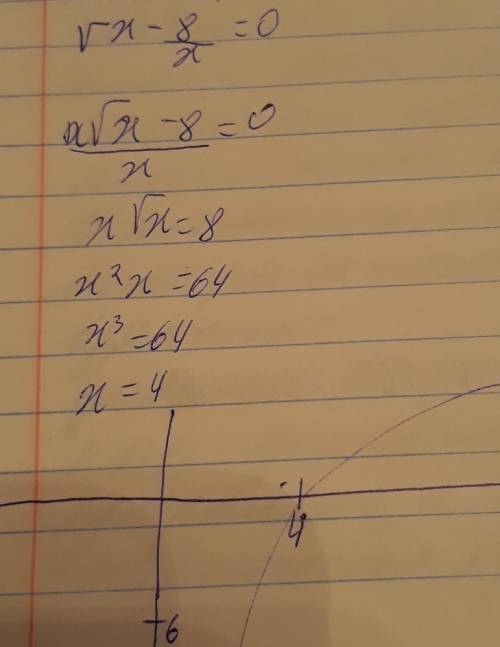 √x - 8/x = 0
(x√x - 8)/x = 0
x√x = 8
x²x = 64
x³ = 64
x = 4
4
6